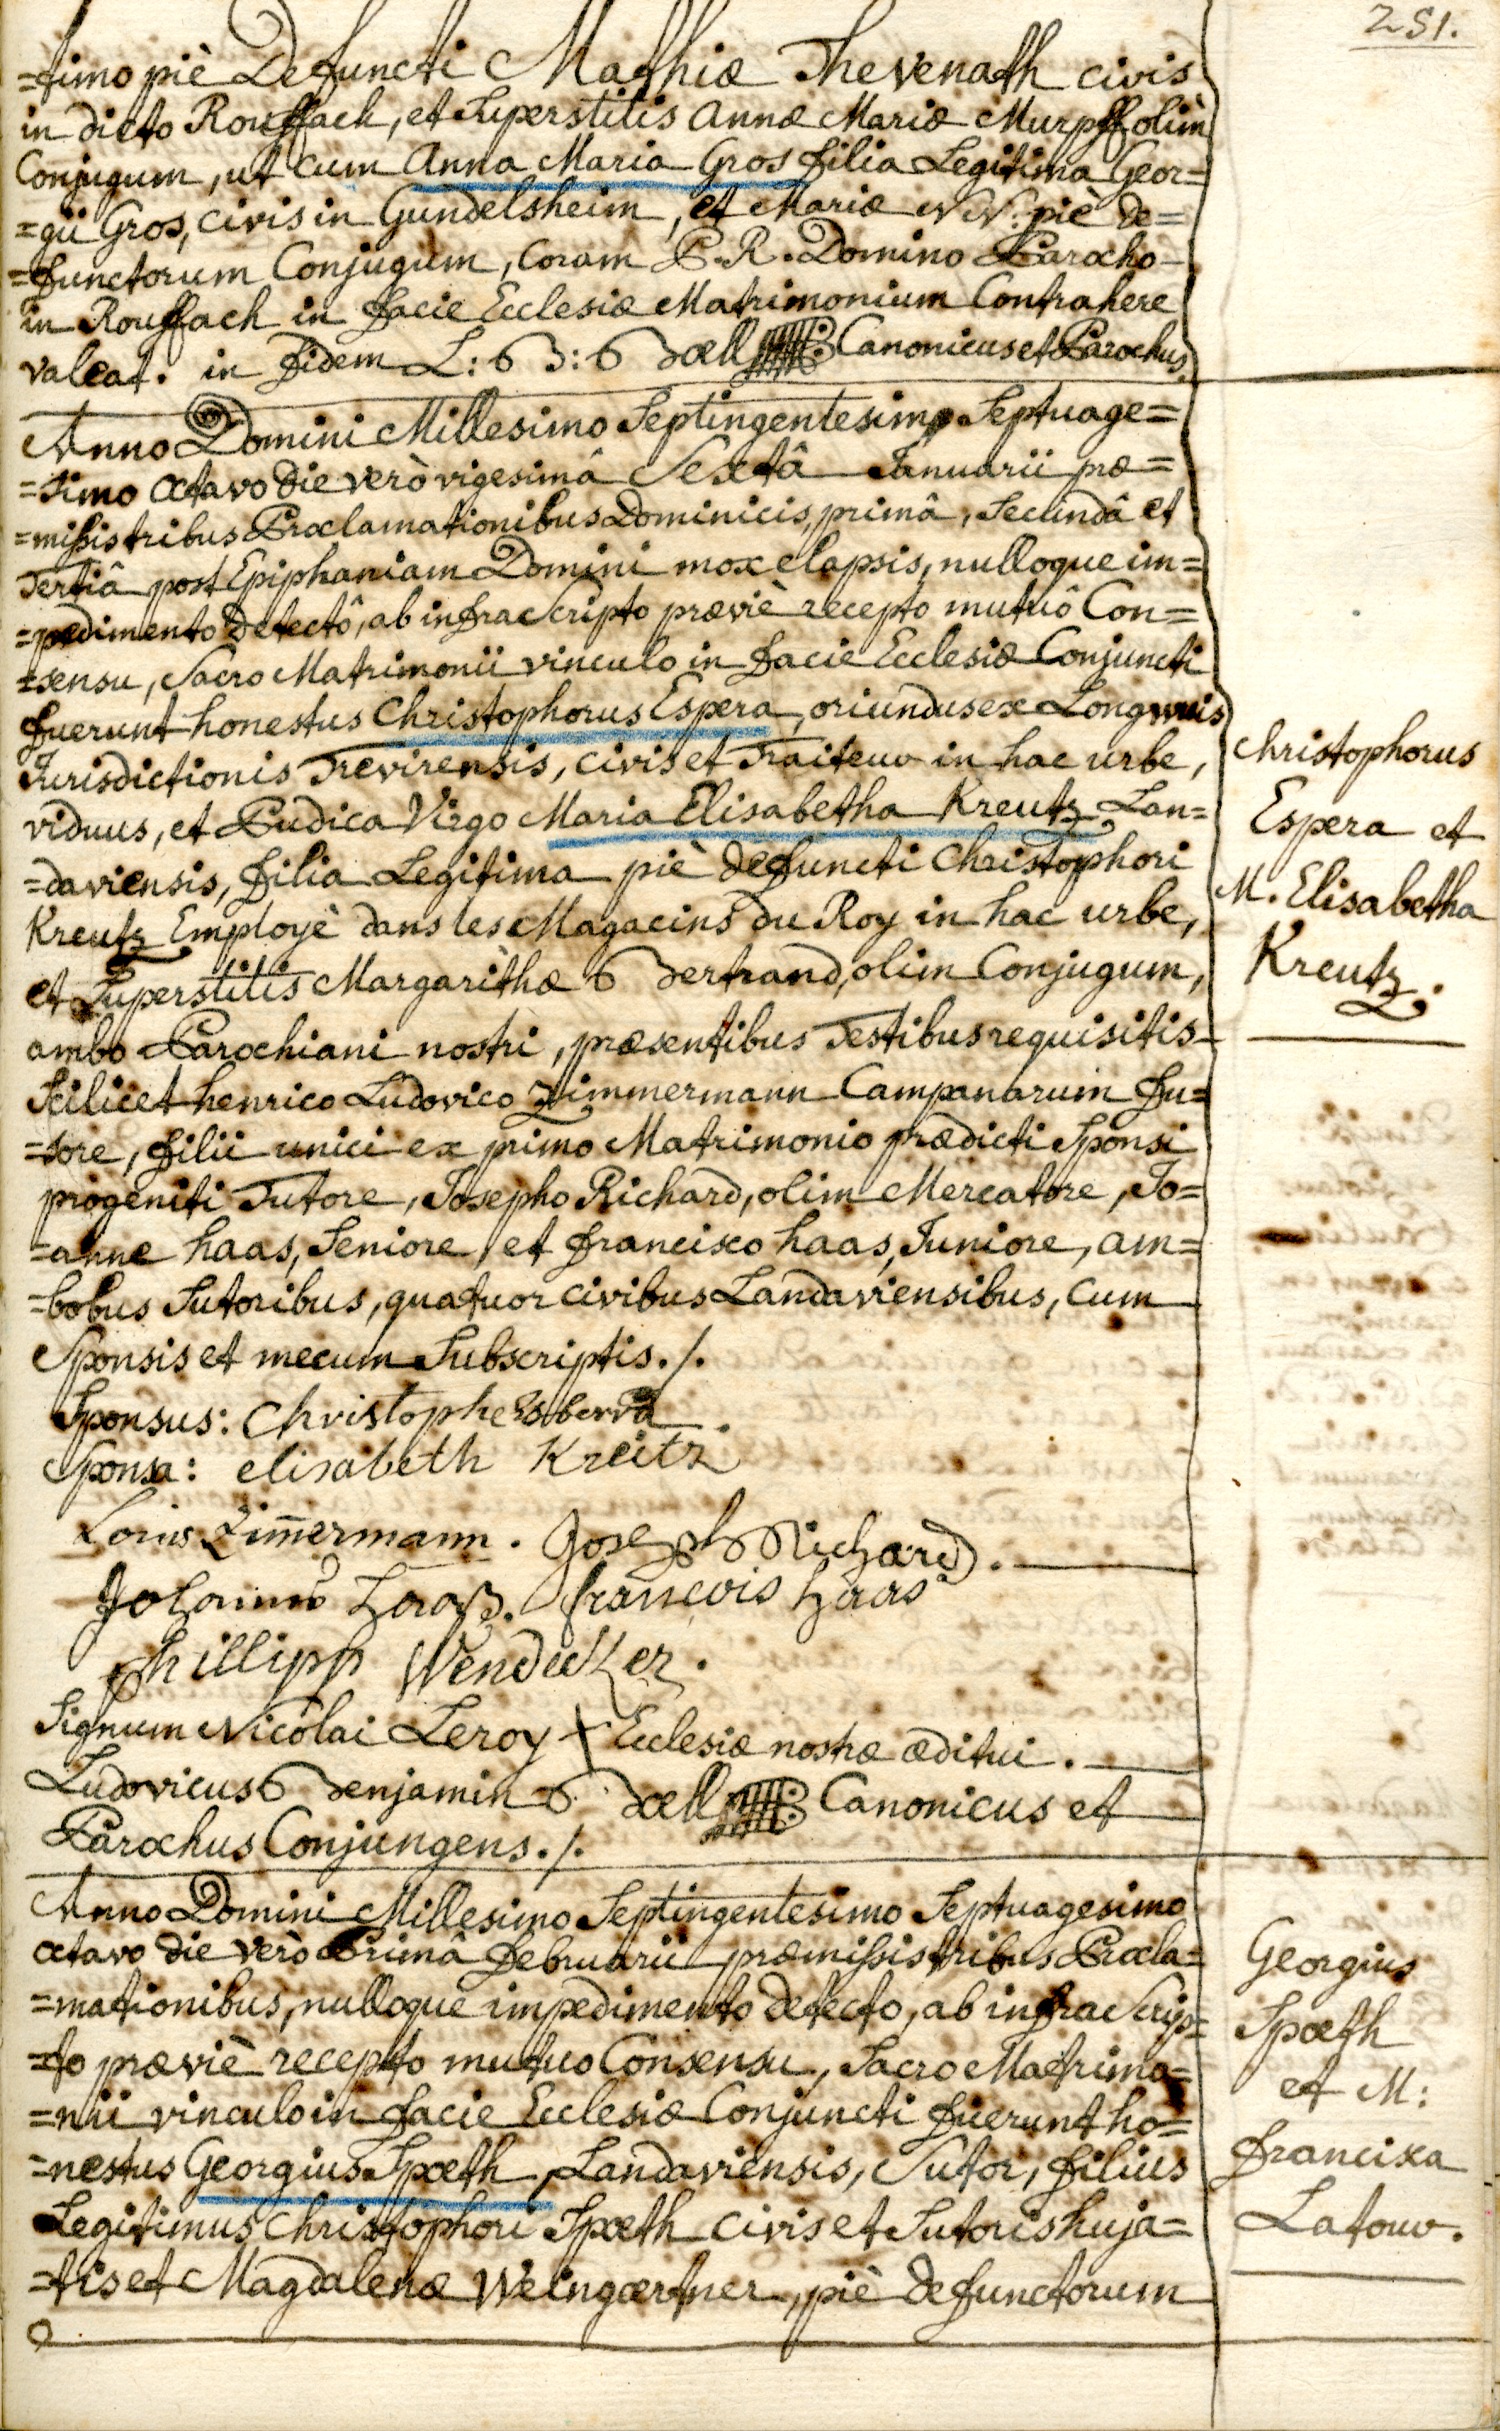 251.
=timo piè Defuncti Mathiæ Thevenath civis
in dicto Rouffach, et Superstitis Annæ Mariæ Murpff olim
Conjugum, ut cum Anna Maria Gros filia Legitima Geor=
=gii Gros, civis in Gundelsheim, et Mariæ N N: piè de=
=functorum Conjugum, coram P. R. Domino Parocho
in Rouffach in facie Ecclesiæ Matrimonium Contrahere
valeat. in fidem L: B: Bœll Canonicus et Parochus.
Anno Domini Millesimo Septingentesimo Septuage=
=simo octavo die verò vigesimâ Sextâ Januarii præ=
=missis tribus Proclamationibus Dominicis, primâ, Secundâ et
Tertiâ post Epiphaniam Domini mox elapsis, nulloque im=
=pedimento detectô, ab infra Scripto præviè recepto mutuô Con=
=sensu, Sacro Matrimonii vinculo in facie Ecclesiæ Conjuncti
fuerunt honestus Christophorus Espera, oriundus ex Longwuis
Jurisdictionis Trevirensis, civis et Traiteur in hac urbe,
viduus, et Pudica Virgo Maria Elisabetha Kreutz Lan=
=daviensis, filia Legitima piè defuncti Christophori
Kreutz Employè dans les Magacins du Roy in hac urbe,
et Superstitis Margarithæ Bertrand, olim Conjugum,
ambo Parochiani nostri, præsentibus Testibus requisitis
Scilicet henrico Ludovico Zimmermann Campanarum fu=
=sore, filii unici ex primo Matrimonio prædicti Sponsi
progeniti Tutore, Josepho Richard, olim Mercatore, Jo=
=anne haas, Seniore, et francisco haas, Juniore, am=
=bobus Sutoribus, quatuor civibus Landaviensibus, cum
Sponsis et mecum Subscriptis ./.
Christophorus
Espera et
M. Elisabetha
Kreutz.
Sponsus: Christophe Esberra
Sponsa: elisabeth Kreitz
Louis Zimmermann. Joseph Richard.
Johannes Haaß. francois haas
Phillipp Wendecker.
Signum Nicolai Leroy + Ecclesiæ nostræ æditui.
Ludovicus Benjamin Bœll Canonicus et
Parochus Conjungens ./.
Anno Domini Millesimo Septingentesimo Septuagesimo
octavo die verò Primâ februarii præmissis tribus Procla=
=mationibus, nulloque impedimento detecto, ab infra Scrip=
=to præviè recepto mutuo Consensu, Sacro Matrimo=
=nii vinculo in facie Ecclesiæ Conjuncti fuerunt ho=
=nestus Georgius Spœth, Landaviensis, Sutor, filius
Legitimus Christophori Spœth civis et Sutoris huja=
=tis et Magdalenæ Weingærtner, piè defunctorum
Georgius
Spœth
et M:
francisca
Latour.